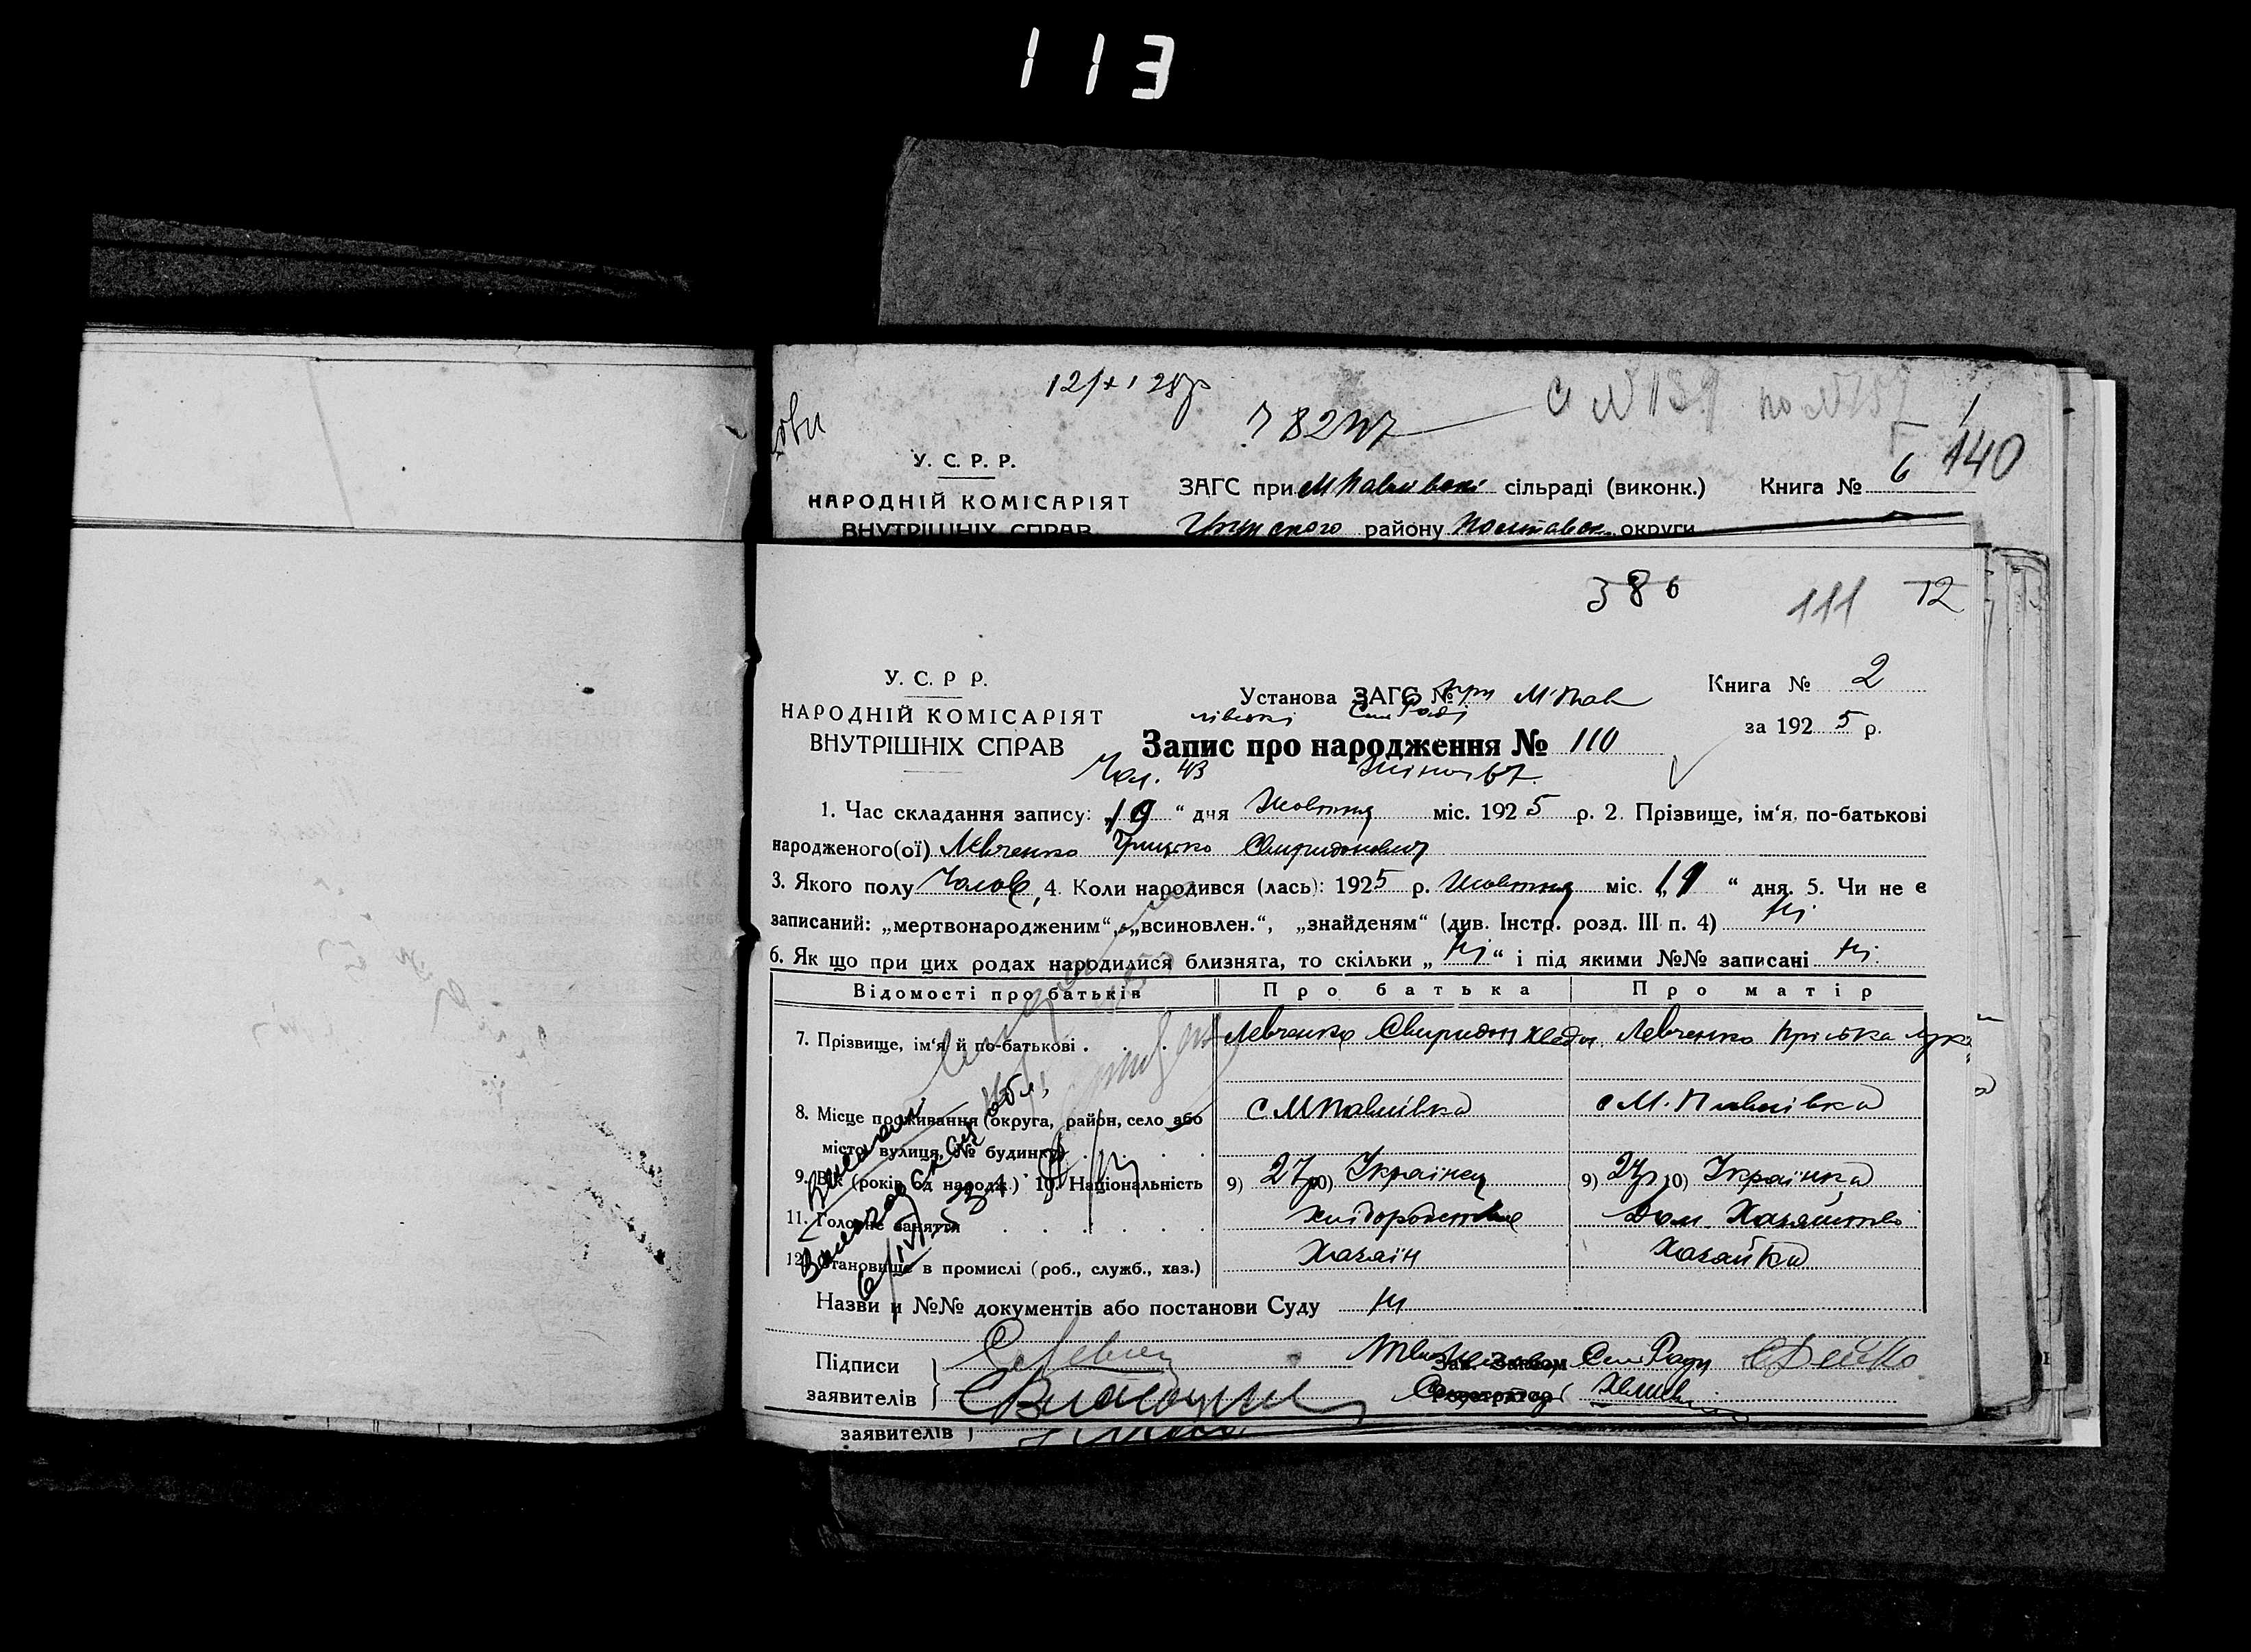 113
140
У. С. Р. Р.
НАРОДНІЙ КОМІСАРІЯТ
ВНУТРІШНІХ СПРАВ
ЗАГС при М Павлівські сільраді (виконк.) Книга № 6
району Полтавськ. округи
386
111 12
У. С. Р Р.
НАРОДНІЙ КОМІСАРІЯТ
ВНУТРІШНІХ СПРАВ
Установа ЗАГС № при М-Пав
лівські Сил Раді
Книга № 2
за 1925 р.
Запис про народження № 110
Чол. 43 Жіноч 67.
1. Час складання запису: „19“ дня Жовтня міс. 1925 р. 2. Прізвище, ім‘я, по-батькові
народженого(ої) Левченко Грицько Свиридонович
3. Якого полу Чолов, 4. Коли народився (лась): 1925 р. Жовтня міс. „ “ дня. 5. Чи не є
записаний: „мертвонародженим“, „всиновлен.“, „знайденям“ (див. Інстр. розд. III п. 4) Ні
6. Як що при цих родах народилися близнята, то скільки „Ні“ і під якими №№ записані Ні.
Відомості про батьків Про батька Про матір
7. Прізвище, ім‘я й по-батькові . . . Левченко Свиридон Левченко Пріська Лук
8. Місце проживання (округа, район, село або с М Павлівка с М. Павлівка
місто, вулиця, № будинку) . . .
9. Вік (років од народж.) 10. Національність 9) 27 р 10) Українец 9) 27 р 10) Українка
11. Головне заняття . . . Хліборобство Дом. Хазяйство
12. Становище в промислі (роб., служб., хаз.) Хазаїн Хазайка
Назви и №№ документів або постанови Суду Ні
Підписи
заявителів
Зав. Загсом Сил Ради
Регистратор
заявителів